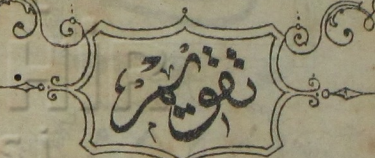 تقويم